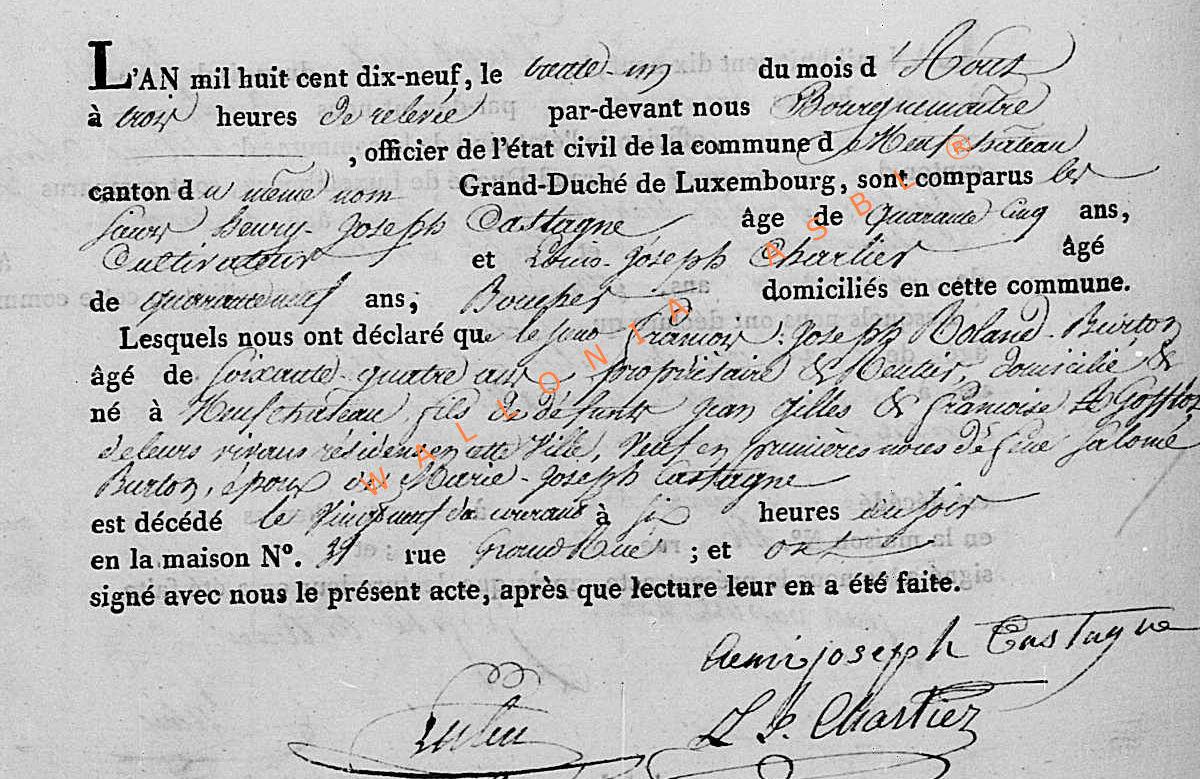 L'AN mil huit cent dix-neuf, le trente-un du mois d'Aout
à trois heures de relevée par-devant nous Bourguemaitre
, officier de l'état civil de la commune de Neufchâteau
canton du même nom Grand-Duché de Luxembourg, sont comparus les
sieurs Henry-Joseph Castagne âge de quarante cinq ans,
Cultivateur et Louis-Joseph Charlier âgé
de quaranteneuf ans, Boucher domiciliés en cette commune.
Lesquels nous ont déclaré que le sieur François-Joseph Roland-Burton
âgé de soixante-quatre ans, propriétaire & Rentier, domicilié &
né à Neufchateau, fils de défunts Jean Gilles & Françoise
de leurs vivans résident en cette Ville, Veuf en premières noces de feue Salomé
Burton, époux de Marie-Joseph Castagne
est décédé le vingtneuf du courant à six heures du soir
en la maison N°. 31 rue Grand Rue ; et ont
signé avec nous le présent acte, après que lecture leur en a été faite.
henri joseph Castagne
L J. Charlier
WALLONIA ASBL ®